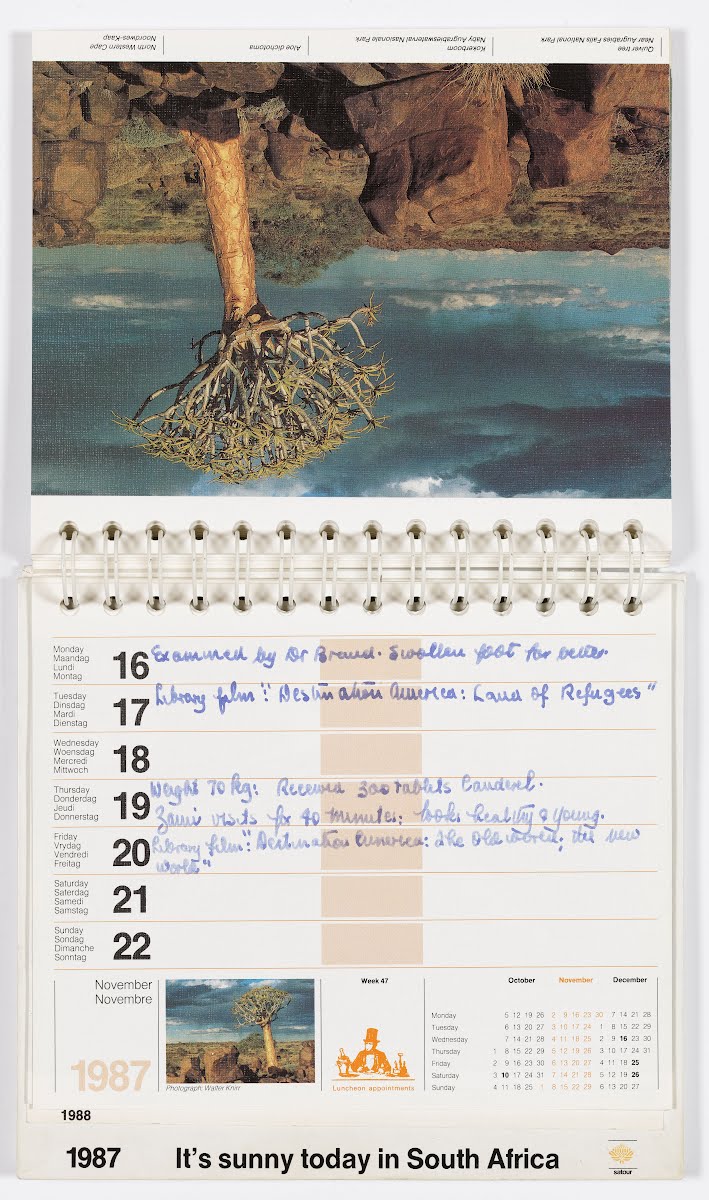 Quiver tree
Near Augrabies Falls National Park
Kokerboom
Naby Augrabieswaterval Nasionale Park
Aloe dichotoma
North Western Cape
Noordwes-Kaap
Monday
Maandag
Lundi
Montag
16 Examined by Dr Brand. Swollen foot far better.
Tuesday
Dinsdag
Mardi
Dienstag
17 Library film: "Destination America: Land of Refugees"
Wednesday
Woensdag
Mercredi
Mittwoch
18
Thursday
Donderdag
Jeudi
Donnerstag
19 Weight 70 kg: Received 300 tablets Canderel.
Zami visits for 40 minutes; looks healthy & young.
Friday
Vrydag
Vendredi
Freitag
20 Library film: "Destination America: The Old world; the new
world"
Saturday
Saterdag
Samedi
Samstag
21
Sunday
Sondag
Dimanche
Sonntag
22
November
Novembre
1987
Photograph: Walter Knirr
Week 47
Luncheon appointments
October November December
Monday 5 12 19 26 2 9 16 23 30 7 14 21 28
Tuesday 6 13 20 27 3 10 17 24 1 8 15 22 29
Wednesday 7 14 21 28 4 11 18 25 2 9 16 23 30
Thursday 1 8 15 22 29 5 12 19 26 3 10 17 24 31
Friday 2 9 16 23 30 6 13 20 27 4 11 18 25
Saturday 3 10 17 24 31 7 14 21 28 5 12 19 26
Sunday 4 11 18 25 1 8 15 22 29 6 13 20 27
1988
1987 It's sunny today in South Africa
satour